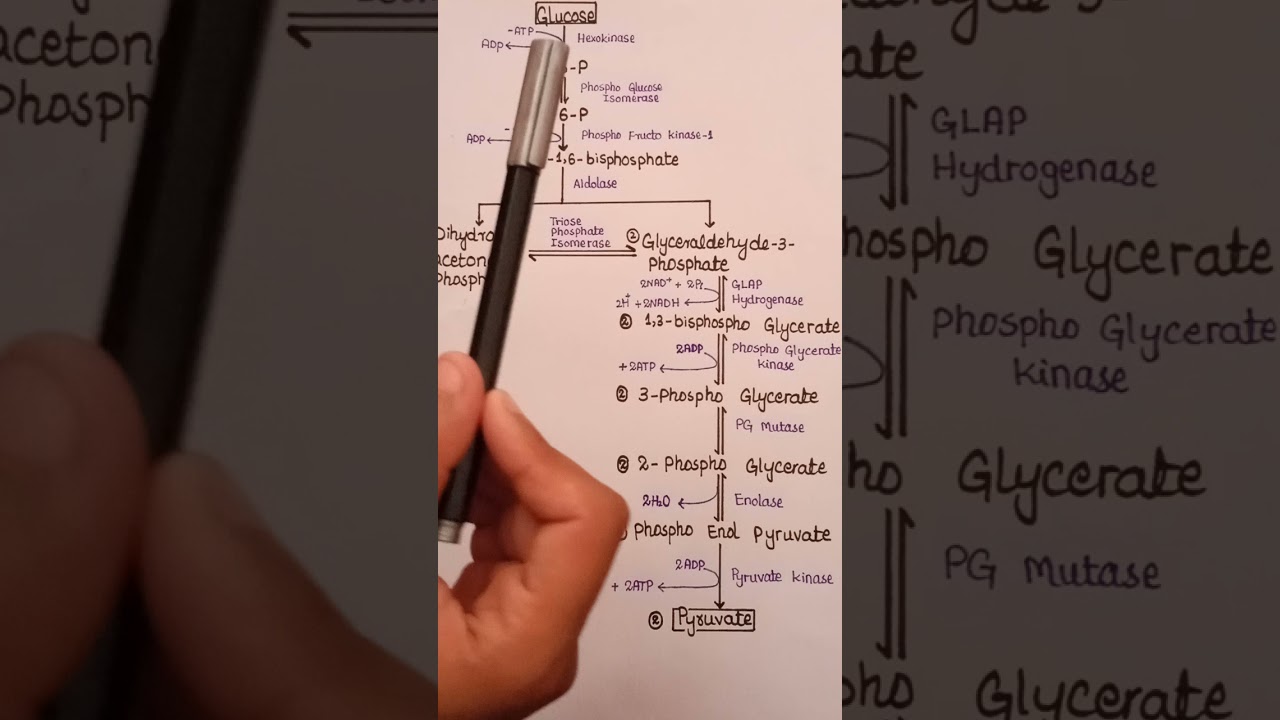 Glucose
-ATP
Hexokinase
ADP
-P
Phospho Glucose
Isomerase
6-P
-
Phospho Fructo kinase-1
ADP
-1,6-bisphosphate
Aldolase
Triose
Phosphate
Isomerase
Dihydro
aceton
Phosph
② Glyceraldehyde-3-
Phosphate
2NAD⁺ + 2Pi
GLAP
2H⁺ + 2NADH
Hydrogenase
② 1,3-bisphospho Glycerate
2ADP
Phospho Glycerate
kinase
+ 2ATP
② 3-Phospho Glycerate
PG Mutase
② 2-Phospho Glycerate
2H₂O
Enolase
Phospho Enol Pyruvate
2ADP
Pyruvate kinase
+ 2ATP
② Pyruvate
aceton
Phosph
ate
GLAP
Hydrogenase
hospho Glycerate
Phospho Glycerate
kinase
ho Glycerate
PG Mutase
pho Glycerate